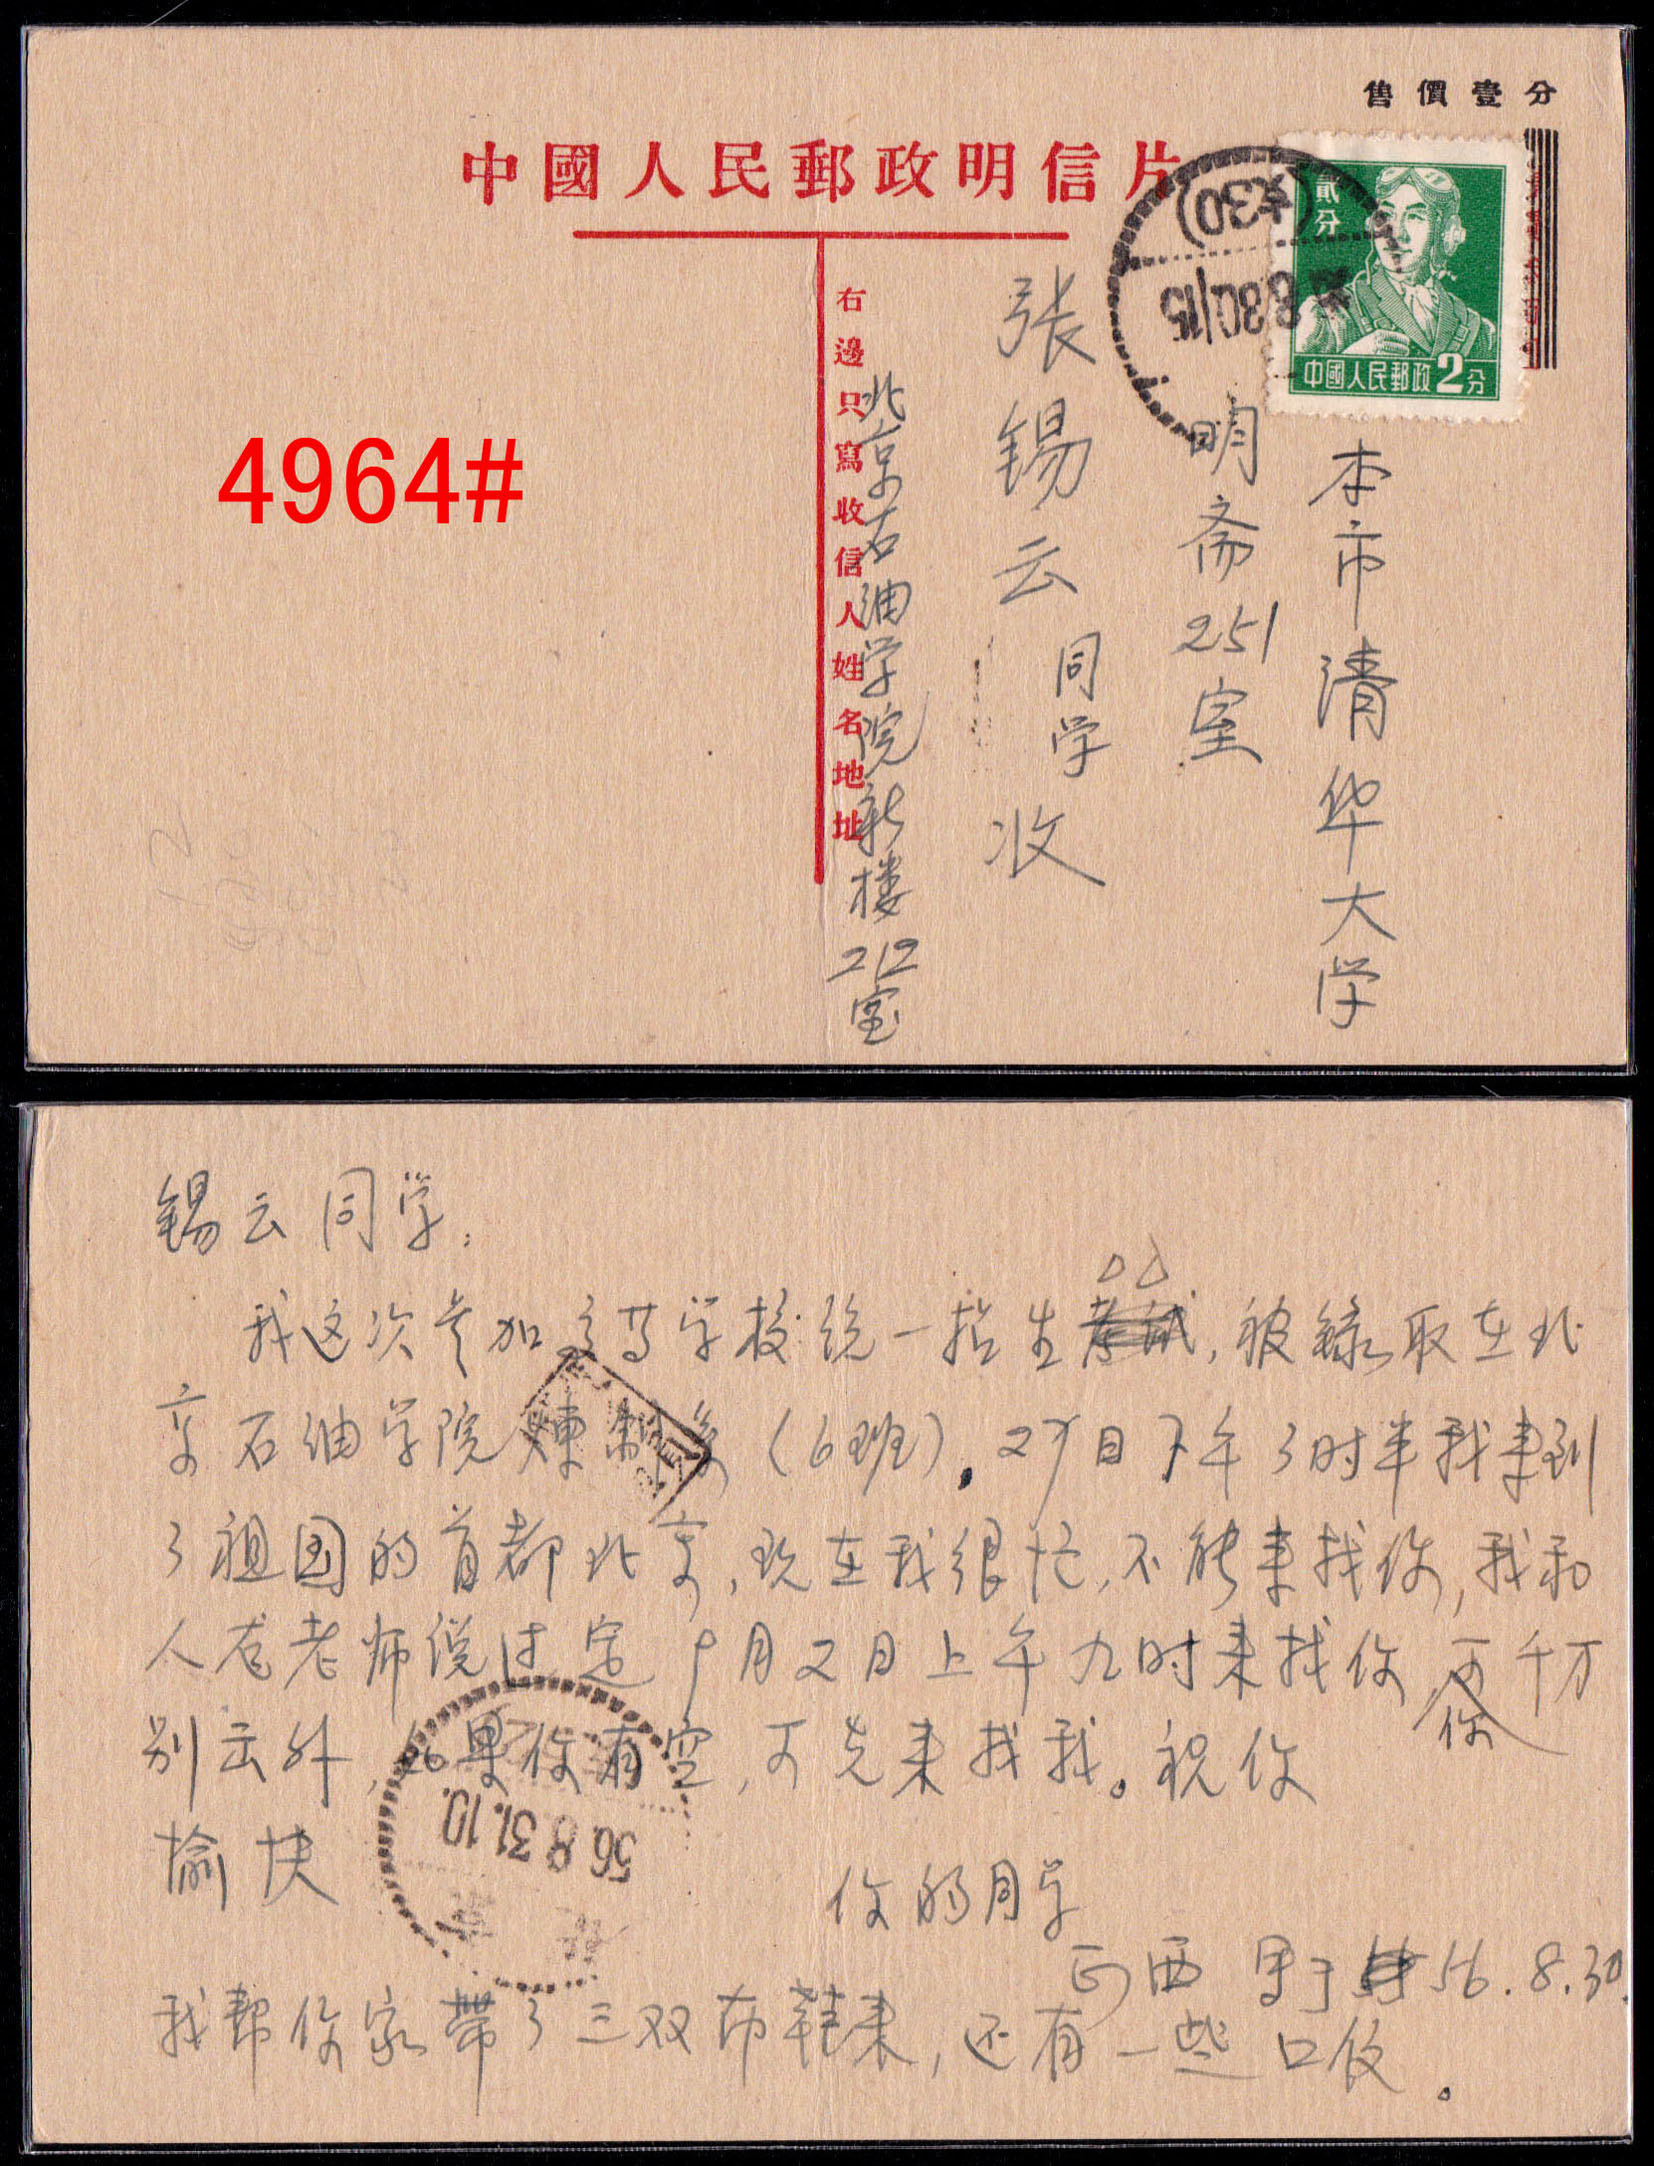 售價壹分
中國人民郵政明信片
貳分
中國人民郵政2分
(支30)
8.30/15
右邊只寫收信人姓名地址
本市清华大学
明斋251室
張锡云同学收
北京石油学院新楼212室
4964#
锡云同学:
我这次参加高等学校统一招生考试,被錄取在北
京石油学院煉制系(6班)。29日下午3时半我来到
了祖国的首都北京,现在我很忙,不能来找你,我和
人老师说过定9月2日上午九时来找你,你可千万
别去外,如果你有空,可先来找我。祝你
愉快
你的同学
正西 56.8.30.
我帮你家带了三双布鞋来,还有一些口饭。
56.8.31.10.